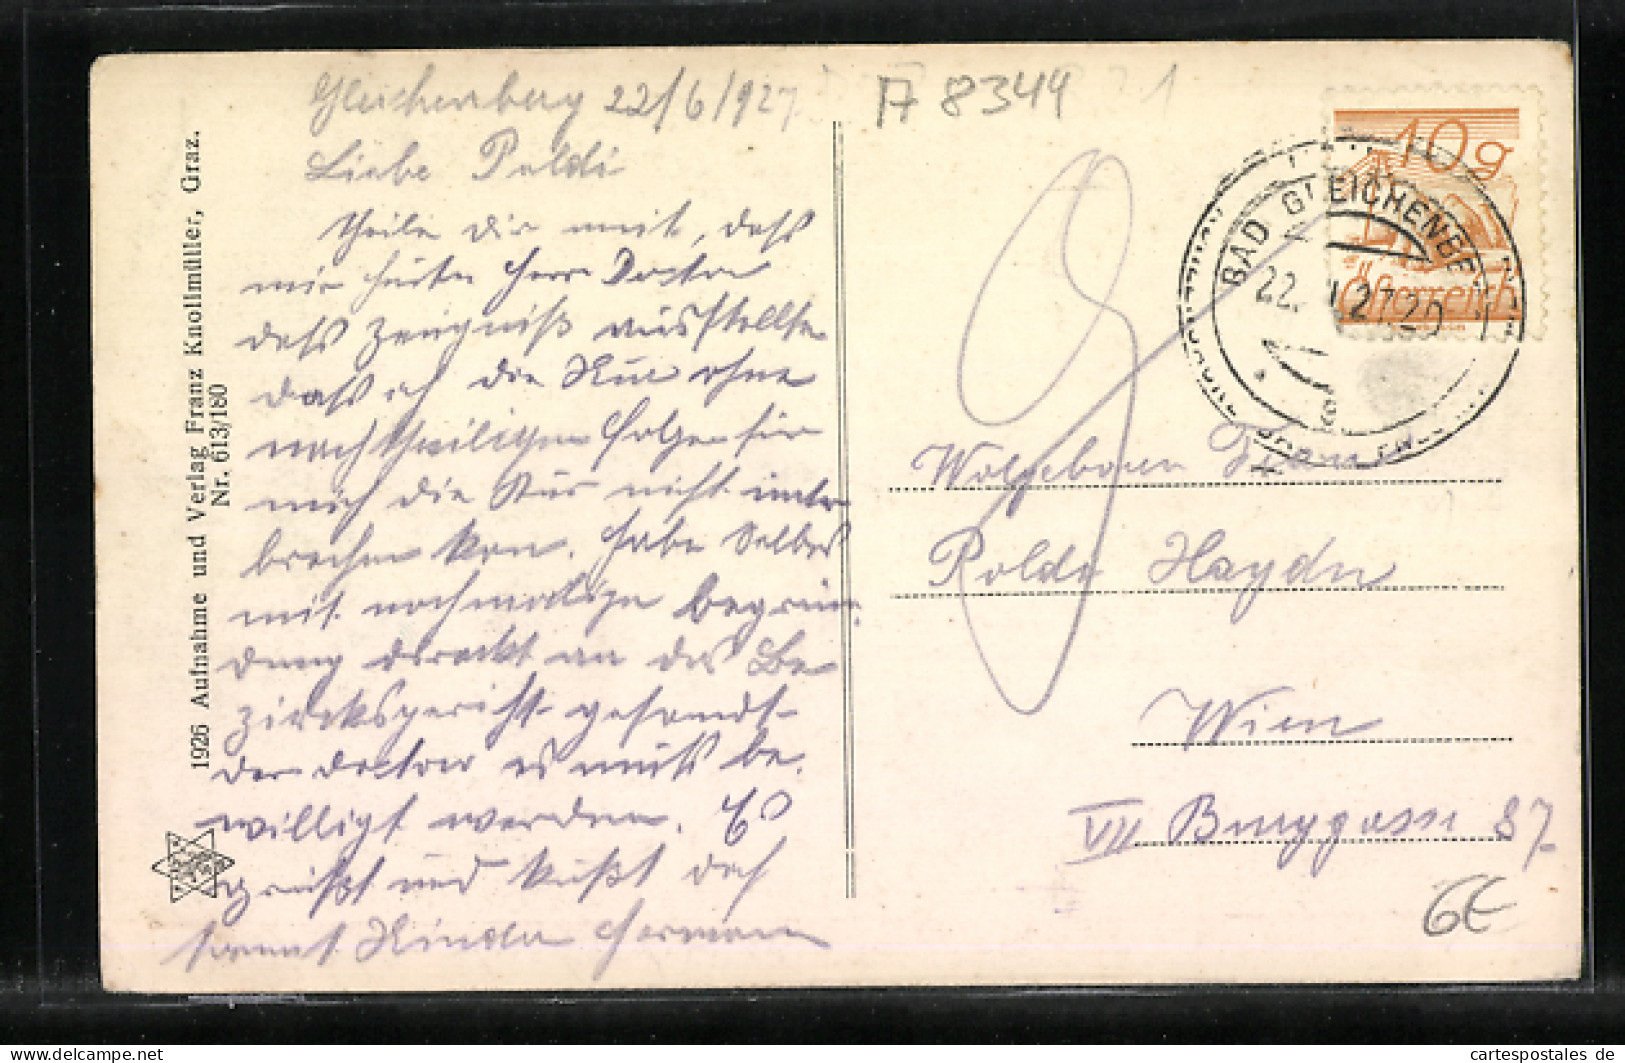 Gleichenberg 22/6/1927
Liebe Poldi
theile dir mit, dass
mir heute Herr Doctor
dass Zeugniß ausstellte
dass ich die Kur ohne
nachtheiligen Folgen für
mich die Kur nicht unter
brechen kan. Habe Selbes
mit nochmalige Begrün-
dung direckt an das Be
zircksgericht gesandt
der Doctor es muß be.
willigt werden. Es
grüßt und küßt dich
samt Kinder Hermann
1926 Aufnahme und Verlag Franz Knollmüller, Graz.
Nr. 613/180
A 8344
10g
Österreich
BAD GLEICHENBE
22. 27.20
Wolgeboren Frau
Poldi Haydn
Wien
VII Burggasse 87
6€
cartespostales de